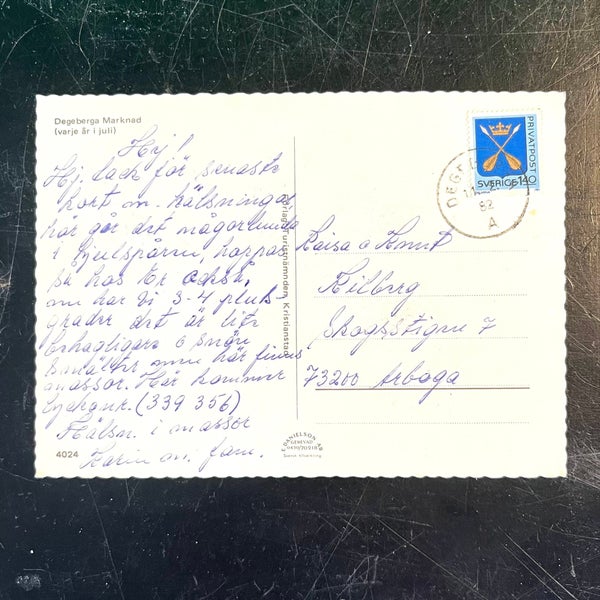 Degeberga Marknad
(varje år i juli)
Hej!
Hej tack för senaste
kort m. hälsningar
här går det någorlunda
i hjulspåren, hoppas
på hos Er också,
nu har vi 3-4 plus-
grader det är lite
behagligare o snön
smälter men här finns
massor. Här kommer
(339 356)
Hälsn. i massor
Karin m. fam.
4024
Förlag: Turistnämnden, Kristianstad
PRIVATPOST
SVERIGE 140
82
A
Raisa o Knut
Kilberg
Skogsstigen 7
73200 Arboga
C. DANIELSON AB
Svensk tillverkning